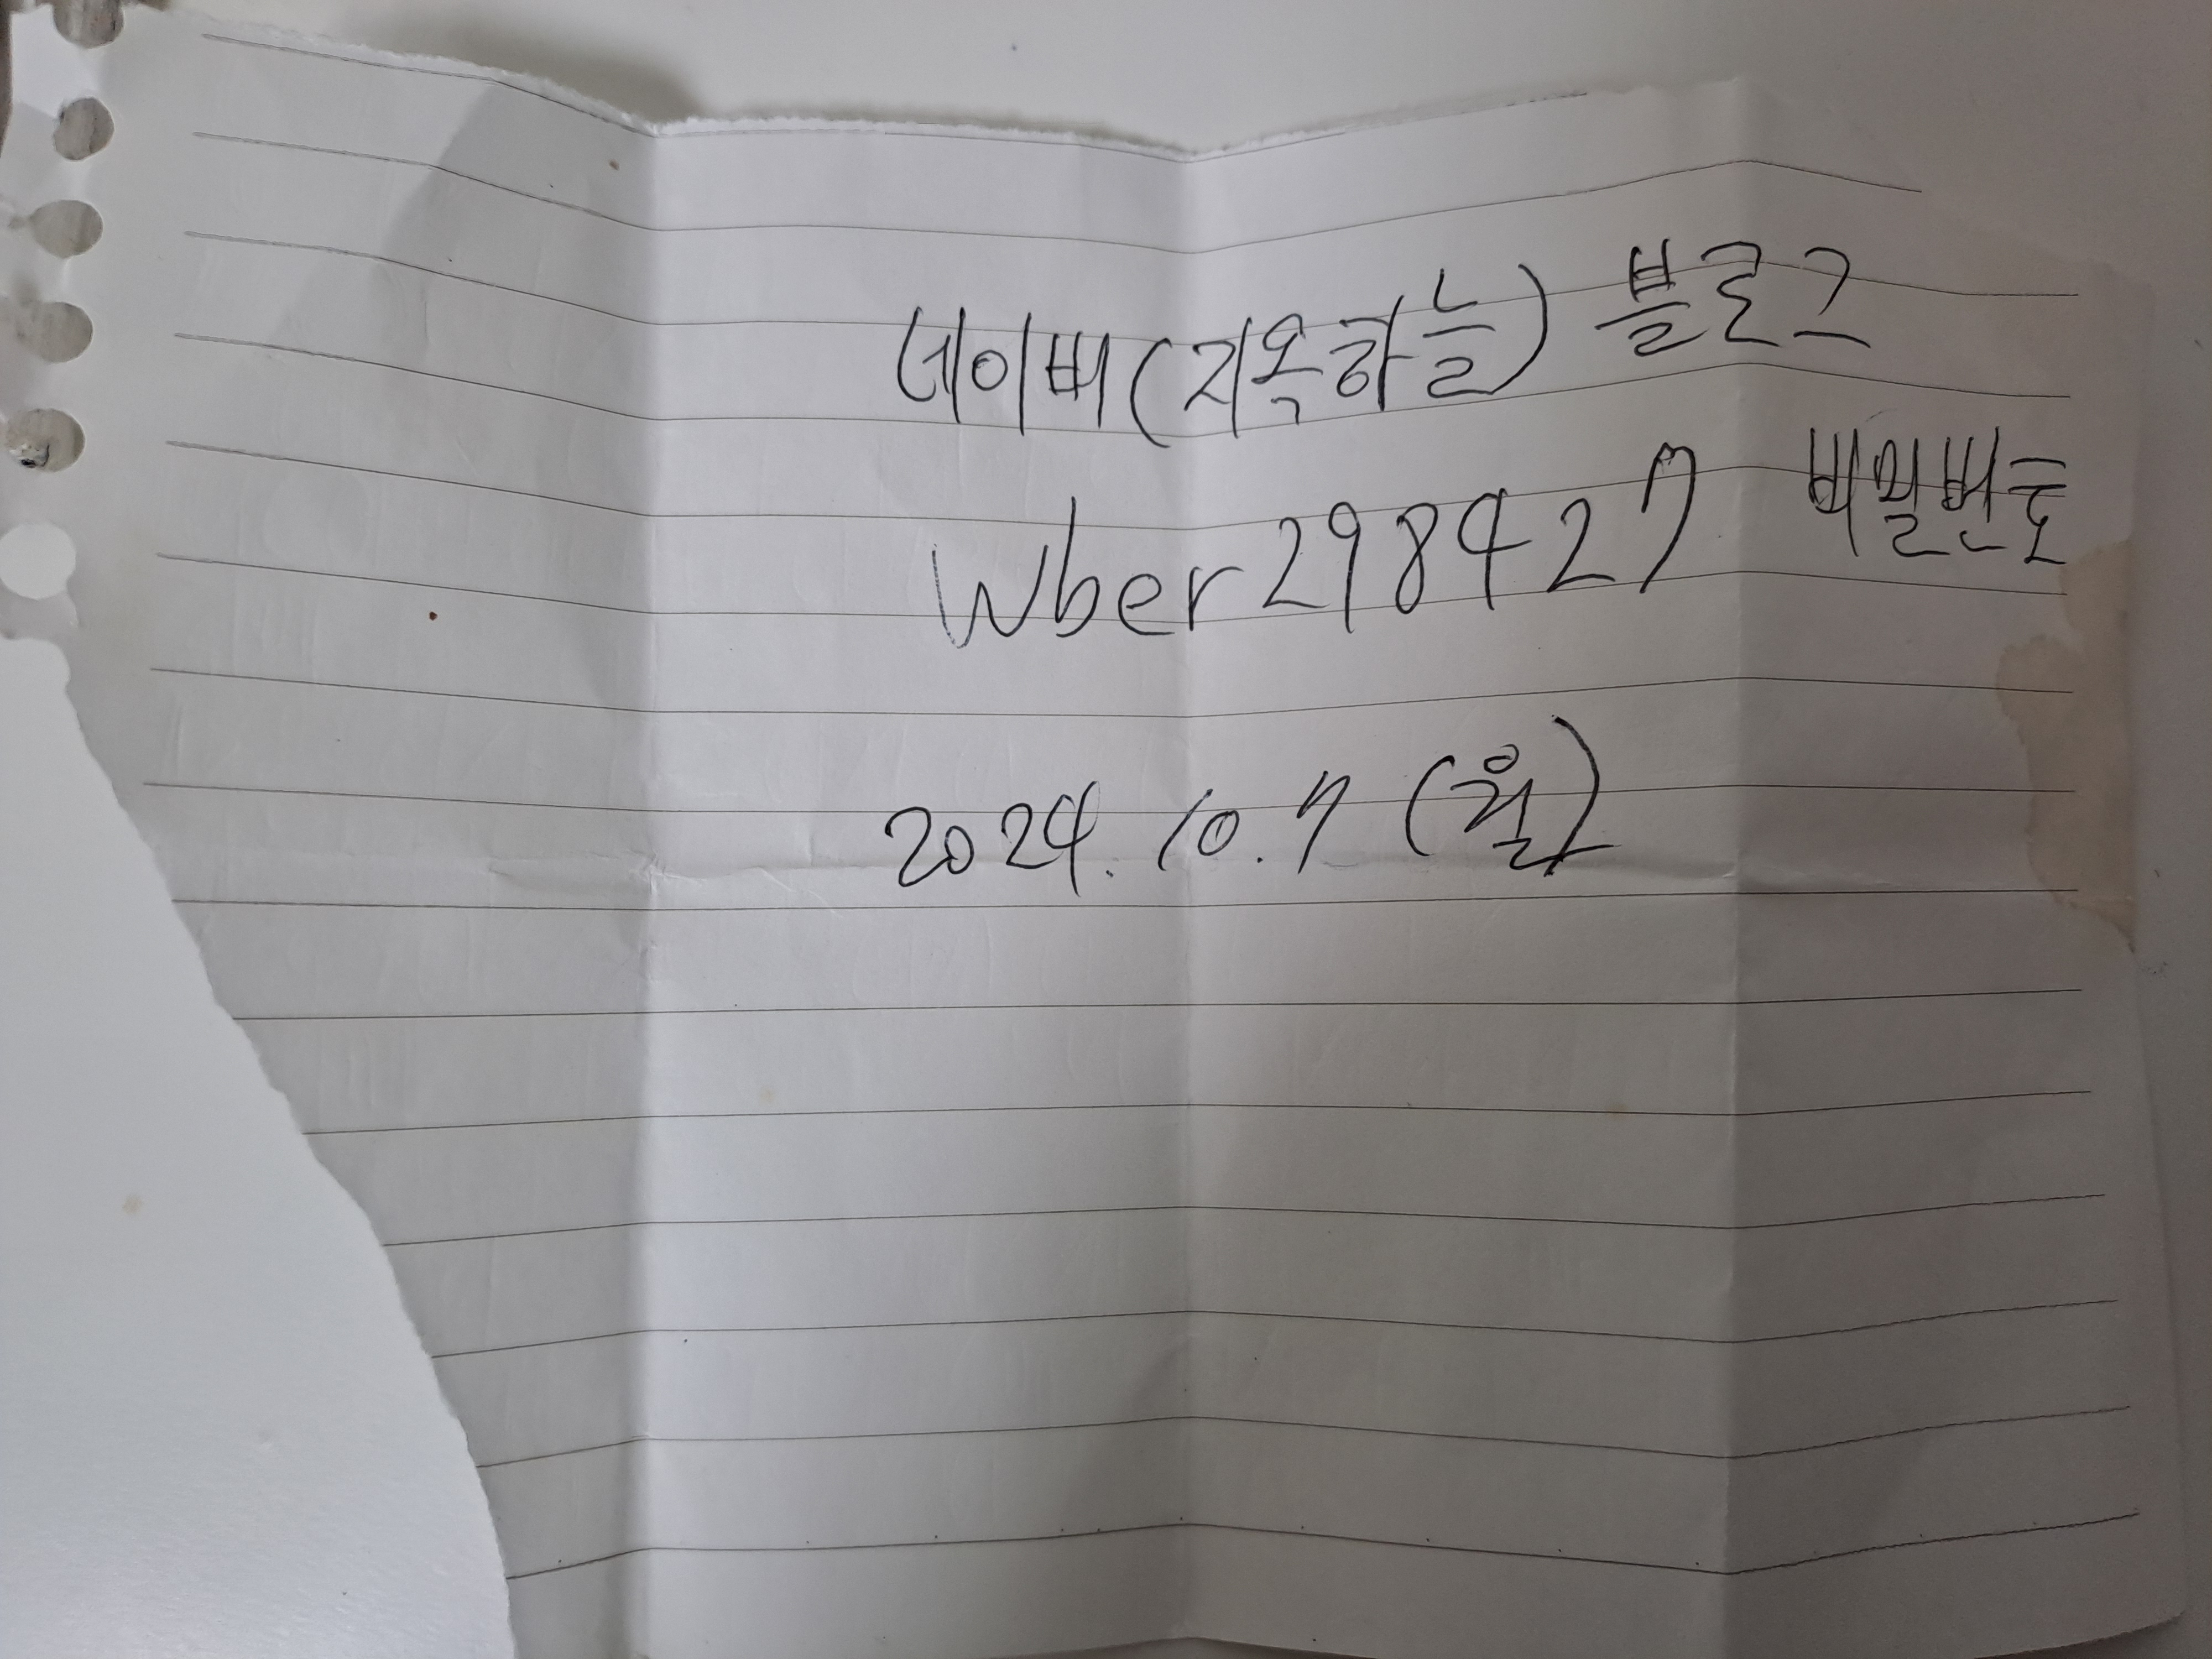 네이버(지옥하늘) 블로그
Wber298427 비밀번호
2024. 10. 7 (월)